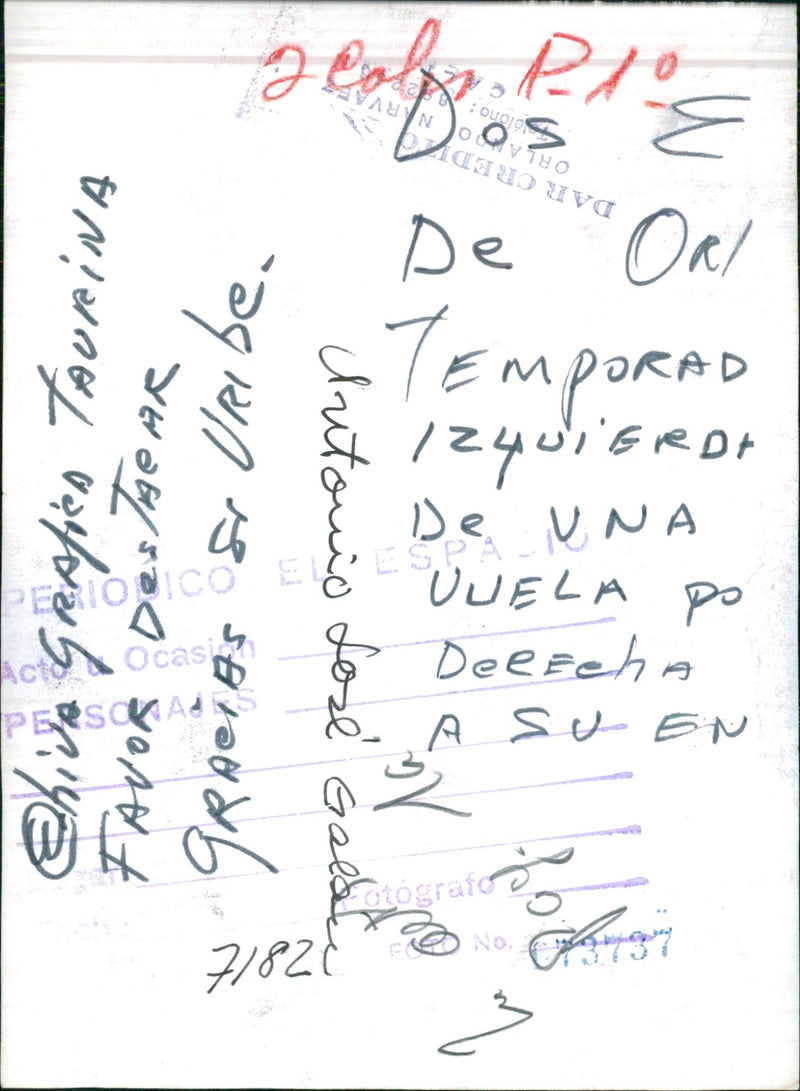 2 Col P-1º
DAR CREDITO
ORLANDO NARVAEZ
Teléfono:
Dos E
De Orl
TEMPORAD
IZQUIERDA
De UNA
VUELA po
DeRECHA
A SU EN
GRAfiCA TAURINA
FAVOR DesTACAR
GRACIAS Sr URIbe.
Antonio José
7/82
PERIODICO EL ESPACIO
Acto u Ocasión
PERSONAJES
Fotógrafo
FOTO No.
173737